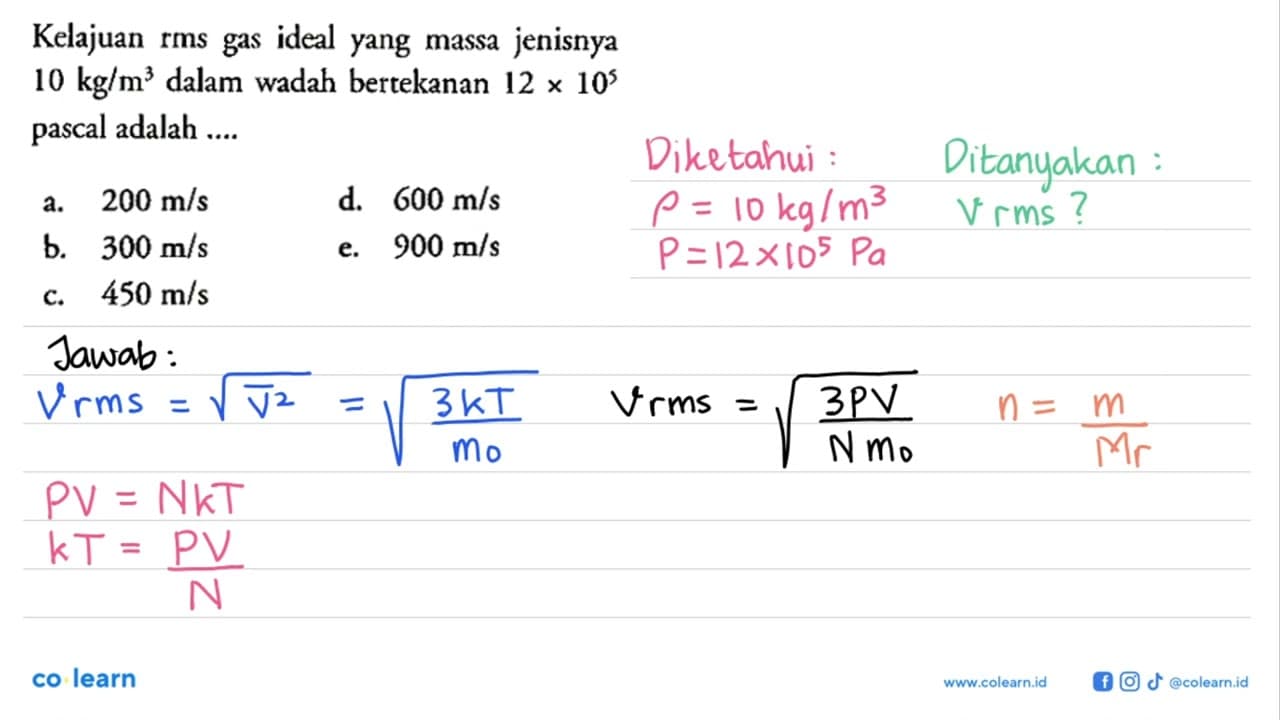 Kelajuan rms gas ideal yang massa jenisnya
10 kg/m³ dalam wadah bertekanan 12 × 10⁵
pascal adalah ....
a. 200 m/s
b. 300 m/s
c. 450 m/s
d. 600 m/s
e. 900 m/s
Diketahui :
ρ = 10 kg/m³
P = 12 × 10⁵ Pa
Ditanyakan :
Vrms ?
Jawab :
Vrms = √(V̅²) = √(3kT/m₀)
PV = NkT
kT = PV/N
Vrms = √(3PV/Nm₀)
n = m/Mr
co learn
www.colearn.id
@colearn.id